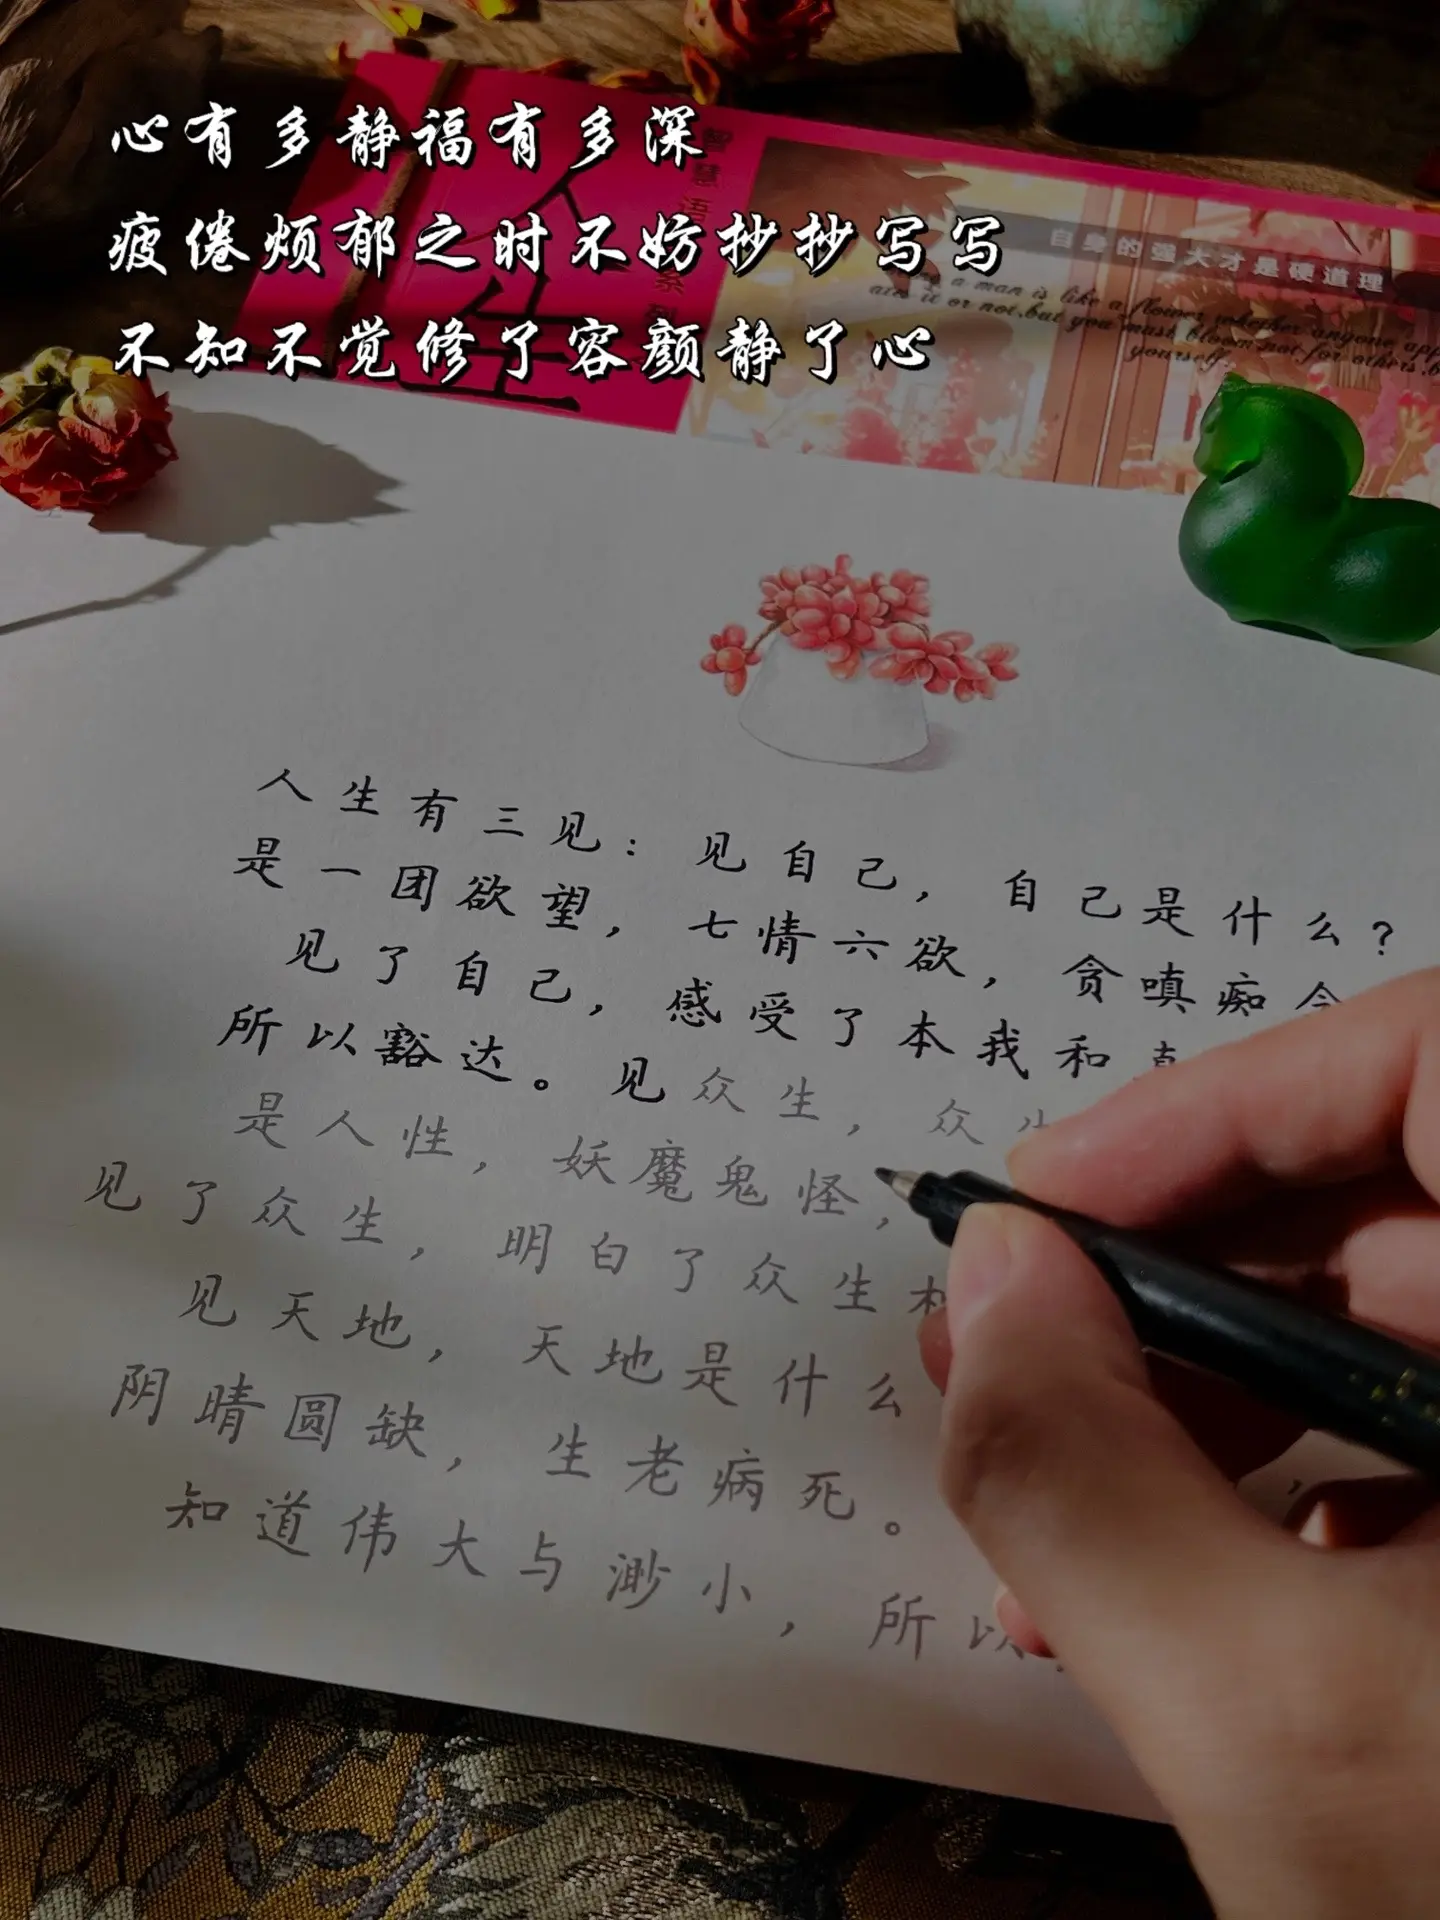 心有多静福有多深
疲倦烦郁之时不妨抄抄写写
不知不觉修了容颜静了心
智慧语
系列
人生
自身的强大才是硬道理
a man is like a flower whether anyone app
ate it or not, but you must bloom not for others, b
yourself
人生有三见：见自己，自己是什么？
是一团欲望，七情六欲，贪嗔痴念
见了自己，感受了本我和真
所以豁达。见众生，众生
是人性，妖魔鬼怪，
见了众生，明白了众生
见天地，天地是什么
阴晴圆缺，生老病死。
知道伟大与渺小，所以